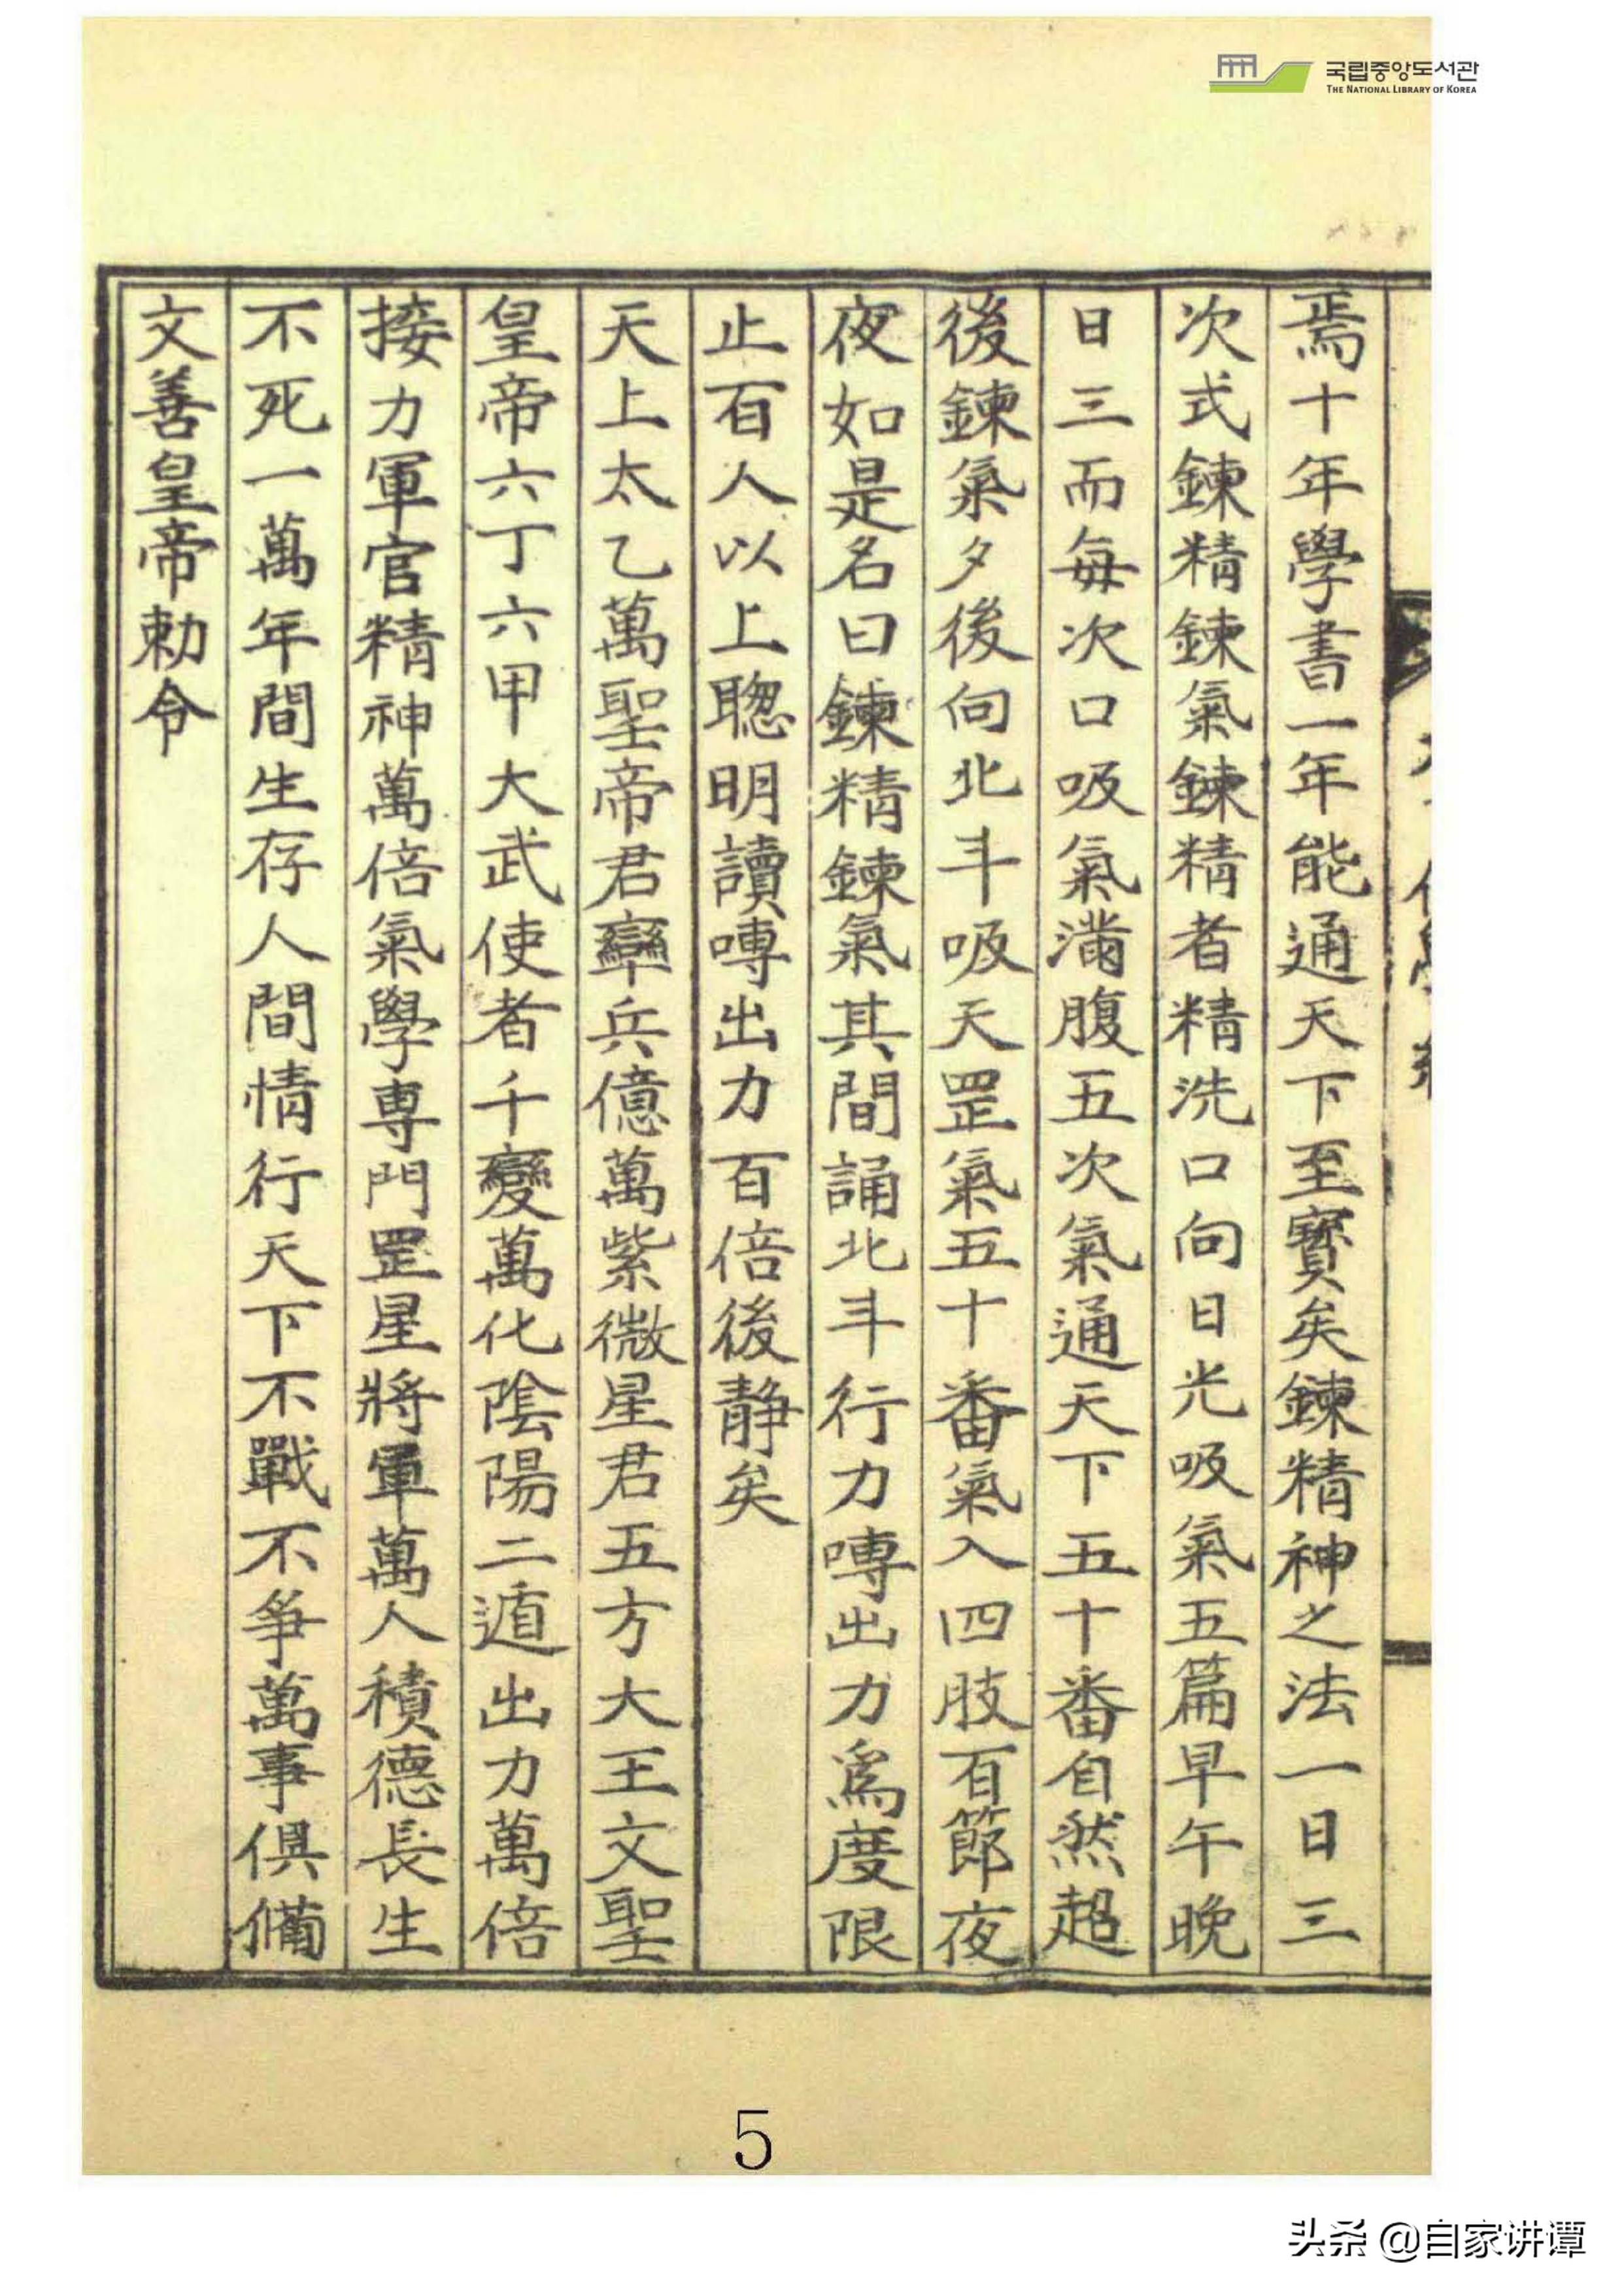 국립중앙도서관
THE NATIONAL LIBRARY OF KOREA
焉十年學書一年能通天下至寶矣鍊精神之法一日三
次式鍊精鍊氣鍊精者精洗口向日光吸氣五篇早午晚
日三而每次口吸氣滿腹五次氣通天下五十番自然超
後鍊氣夕後向北斗吸天罡氣五十番氣入四肢百節夜
夜如是名曰鍊精鍊氣其間誦北斗行力嘑出力爲度限
止百人以上聰明讀嘑出力百倍後静矣
天上太乙萬聖帝君率兵億萬紫微星君五方大王文聖
皇帝六丁六甲大武使者千變萬化陰陽二遁出力萬倍
接力軍官精神萬倍氣學專門罡星將軍萬人積德長生
不死一萬年間生存人間情行天下不戰不爭萬事俱備
文善皇帝勅令
5
头条 @自家讲谭